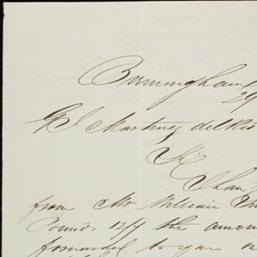 Birmingham
29
G J Martinez del Rio
Sir
from Mr William
Pounds 12/9 the amou
forwarded to you